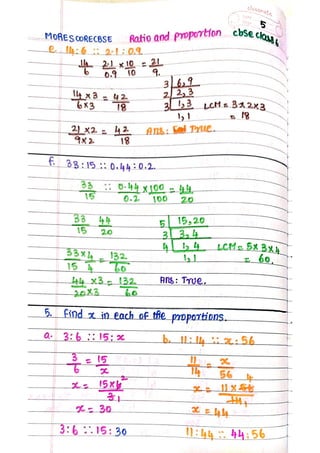 classmate
5
MORESCORECBSE Ratio and proportion cbse class 6
e. 14:6 :: 2.1 : 0.9
14/6 2.1/0.9 × 10/10 = 21/9.
14×3/6×3 = 42/18
3 | 6, 9
2 | 2, 3
3 | 1, 3 LCM = 3×2×3
1, 1 = 18
21×2/9×2 = 42/18 Ans: True.
f. 33:15 :: 0.44 : 0.2.
33/15 :: 0.44/0.2 × 100/100 = 44/20
33/15 44/20
5 | 15, 20
3 | 3, 4
4 | 1, 4 LCM = 5×3×4
1, 1 = 60.
33×4/15 4 = 132/60
44×3/20×3 = 132/60 Ans: True.
5. Find x in each of the proportions.
a. 3:6 :: 15:x b. 11:14 :: x:56
3/6 = 15/x 11/14 = x/56
x = 15×6²/3 1 x = 11×56 4/14 1
x = 30 x = 44
3:6 :: 15:30 11:44 :: 44:56